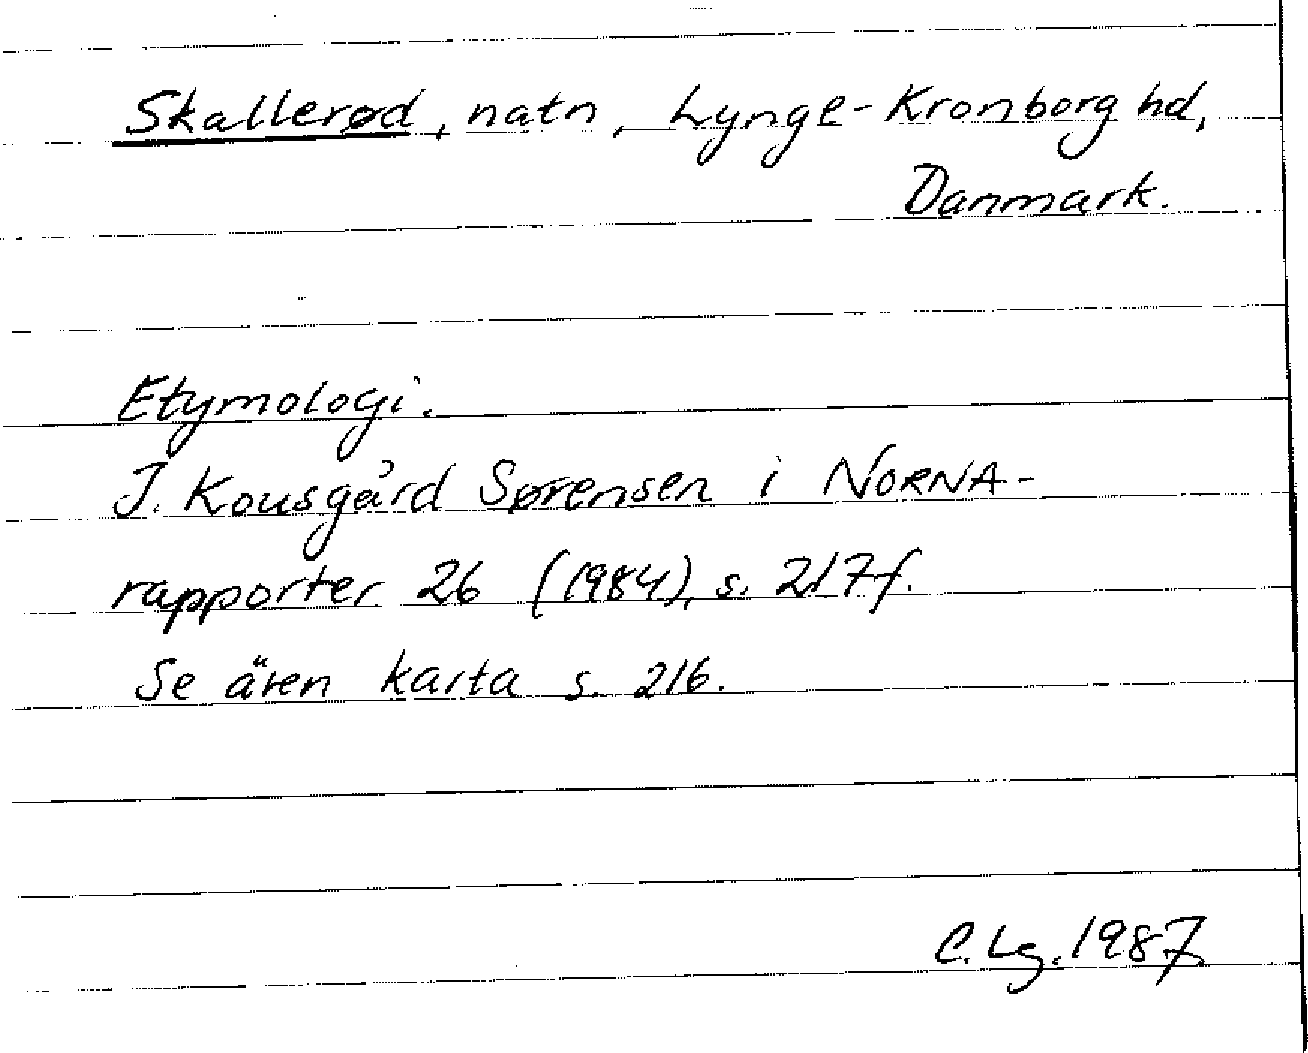 Skallerød, natn, Lynge-Kronborg hd,
Danmark.
Etymologi.
J. Kousgård Sørensen i NORNA-
rapporter 26 (1984), s. 217f.
Se även karta s. 216.
C. Lg. 1987